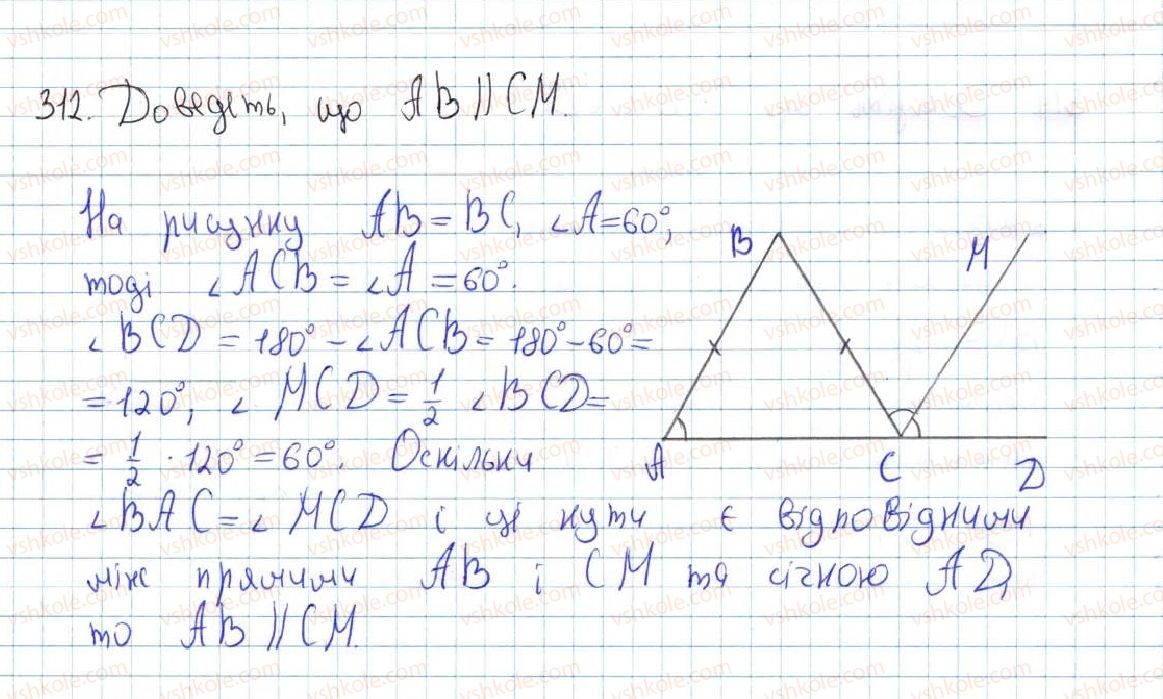 312. Доведіть, що AB || CM.
На рисунку AB = BC, ∠A = 60°,
тоді ∠ACB = ∠A = 60°.
∠BCD = 180° - ∠ACB = 180° - 60° =
= 120°, ∠MCD = 1/2 ∠BCD =
= 1/2 · 120° = 60°. Оскільки
∠BAC = ∠MCD і ці кути є відповідними
між прямими AB і CM та січною AD,
то AB || CM.
B
M
A
C
D
vshkole.com